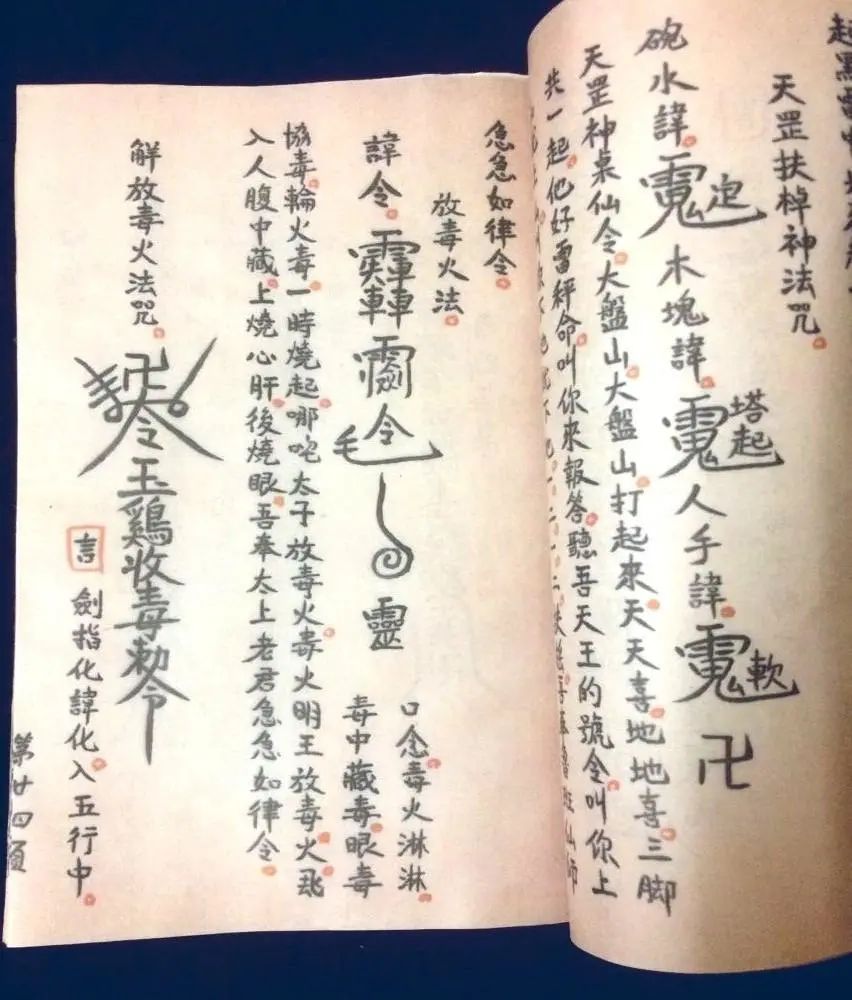 天罡扶棹神法咒。
碗水諱。定
木塊諱。塔起
人手諱。軟
卍
天罡神桌仙令。大盤山。大盤山。打起來。天天喜。地地喜。三脚
共一起。他好雷秤命叫你來報答。聽吾天王的號令。叫你上
急急如律令。
放毒火法。
諱令。
令
毛
靈
口念。毒火淋淋。
毒中藏毒。眼毒
協毒。輪火毒。一時燒起。哪咤太子放毒火。毒火明王放毒火。飛
入人腹中藏。上燒心肝。後燒眼。吾奉太上老君急急如律令。
解放毒火法咒。
令玉鷄收毒勅令
言
劍指化諱化。入五行中。
第廿四頁